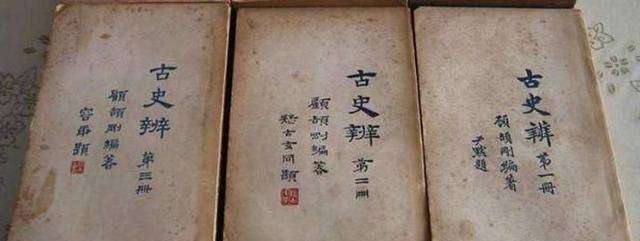 古史辨 第一冊
顧頡剛編著
尹默題
古史辨 第二冊
顧頡剛編著
疑古玄同題
古史辨 第三冊
顧頡剛編著
容庚題